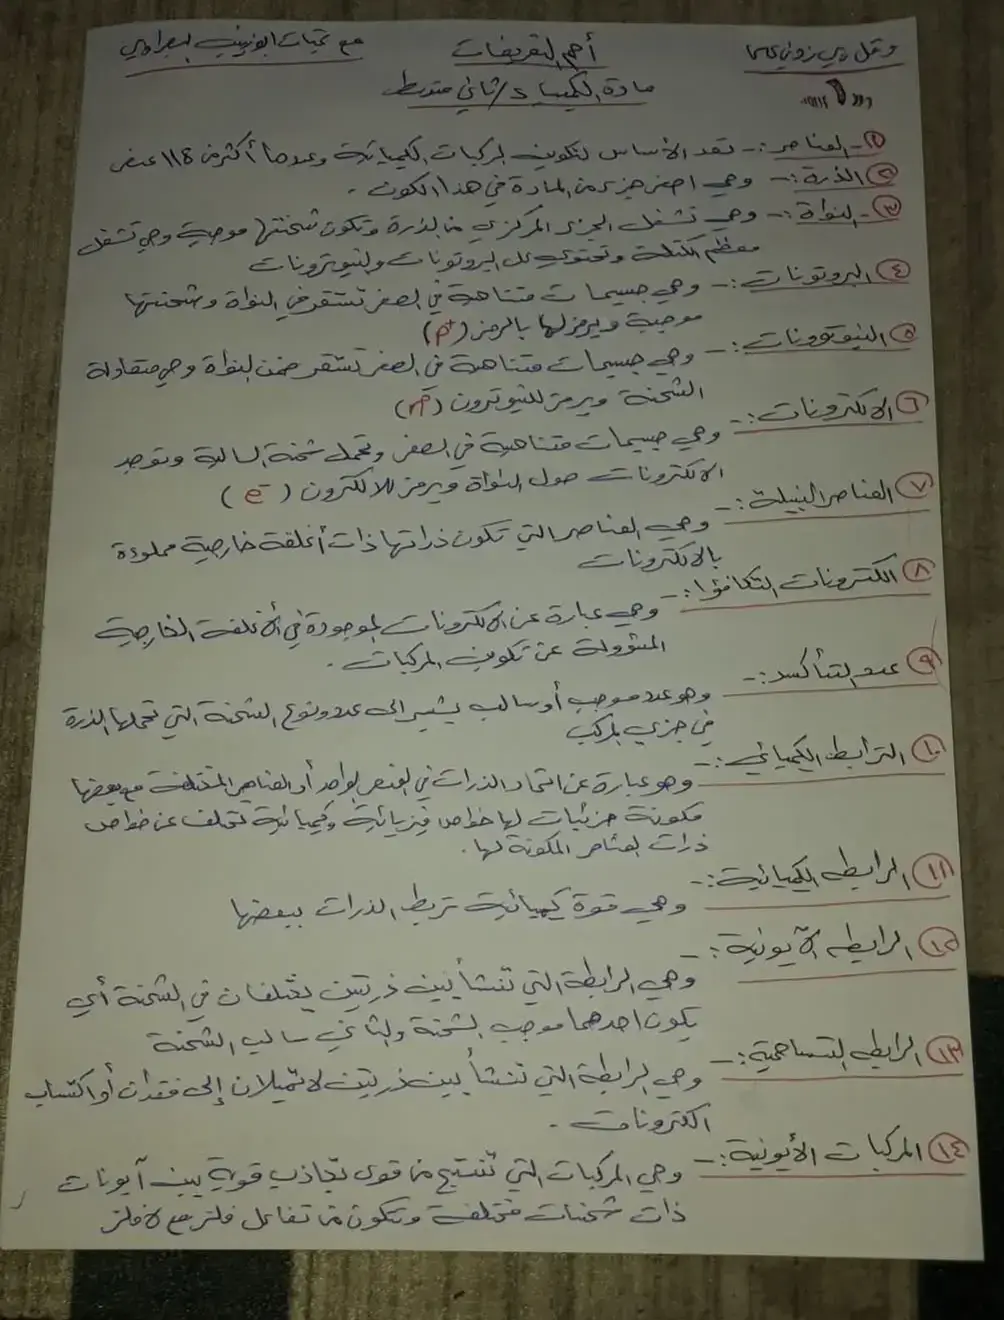 وقل ربي زدني علما
أهم التعريفات
مع تحيات ابو زينب البصراوي
مادة الكيمياء / ثاني متوسط
١- العناصر :- تعد الأساس لتكوين المركبات الكيميائية وعددها أكثر من ١١٨ عنصر
٢ الذرة :- وهي اصغر جزء من المادة في هذا الكون .
٣- النواة :- وهي تشغل الجزء المركزي من الذرة وتكون شحنتها موجبة وهي تشغل
معظم الكتلة وتحتوي على البروتونات والنيوترونات
٤ البروتونات :- وهي جسيمات متناهية في الصغر تستقر في النواة وشحنتها
موجبة ويرمز لها بالرمز (p+)
٥ النيوترونات :- وهي جسيمات متناهية في الصغر تستقر ضمن النواة وهي متعادلة
الشحنة ويرمز للنيوترون (n°)
٦ الالكترونات :- وهي جسيمات متناهية في الصغر وتحمل شحنة السالبة وتوجد
الالكترونات حول النواة ويرمز للالكترون (e-)
٧ العناصر النبيلة :- وهي العناصر التي تكون ذراتها ذات أغلفة خارصية مملوءة
بالالكترونات
٨ الكترونات التكافؤ :- وهي عبارة عن الالكترونات الموجودة في الأغلفة الخارجية
المسؤولة عن تكوين المركبات .
٩ عدد التأكسد :- وهو عدد موجب أو سالب يشير الى عدد ونوع الشحنة التي تحملها الذرة
في جزيء المركب
١٠ الترابط الكيميائي :- وهو عبارة عن اتحاد الذرات في العنصر الواحد أو العناصر المختلفة مع بعضها
مكونة جزيئات لها خواص فيزيائية وكيميائية تختلف عن خواص
ذرات العناصر المكونة لها .
١١ الرابطه الكيميائية :- وهي قوة كيميائية تربط الذرات ببعضها
١٢ الرابطه الآيونية :- وهي الرابطة التي تنشأ بين ذرتين يختلفان في الشحنة أي
يكون احدهما موجب الشحنة والثاني سالب الشحنة
١٣ الرابطه التساهمية :- وهي الرابطة التي تنشأ بين ذرتين لا تميلان إلى فقدان أو اكتساب
الكترونات .
١٤ المركبات الأيونية :- وهي المركبات التي تنتج من قوى تجاذب قوية بين آيونات
ذات شحنات مختلفة وتتكون من تفاعل فلز مع لافلز